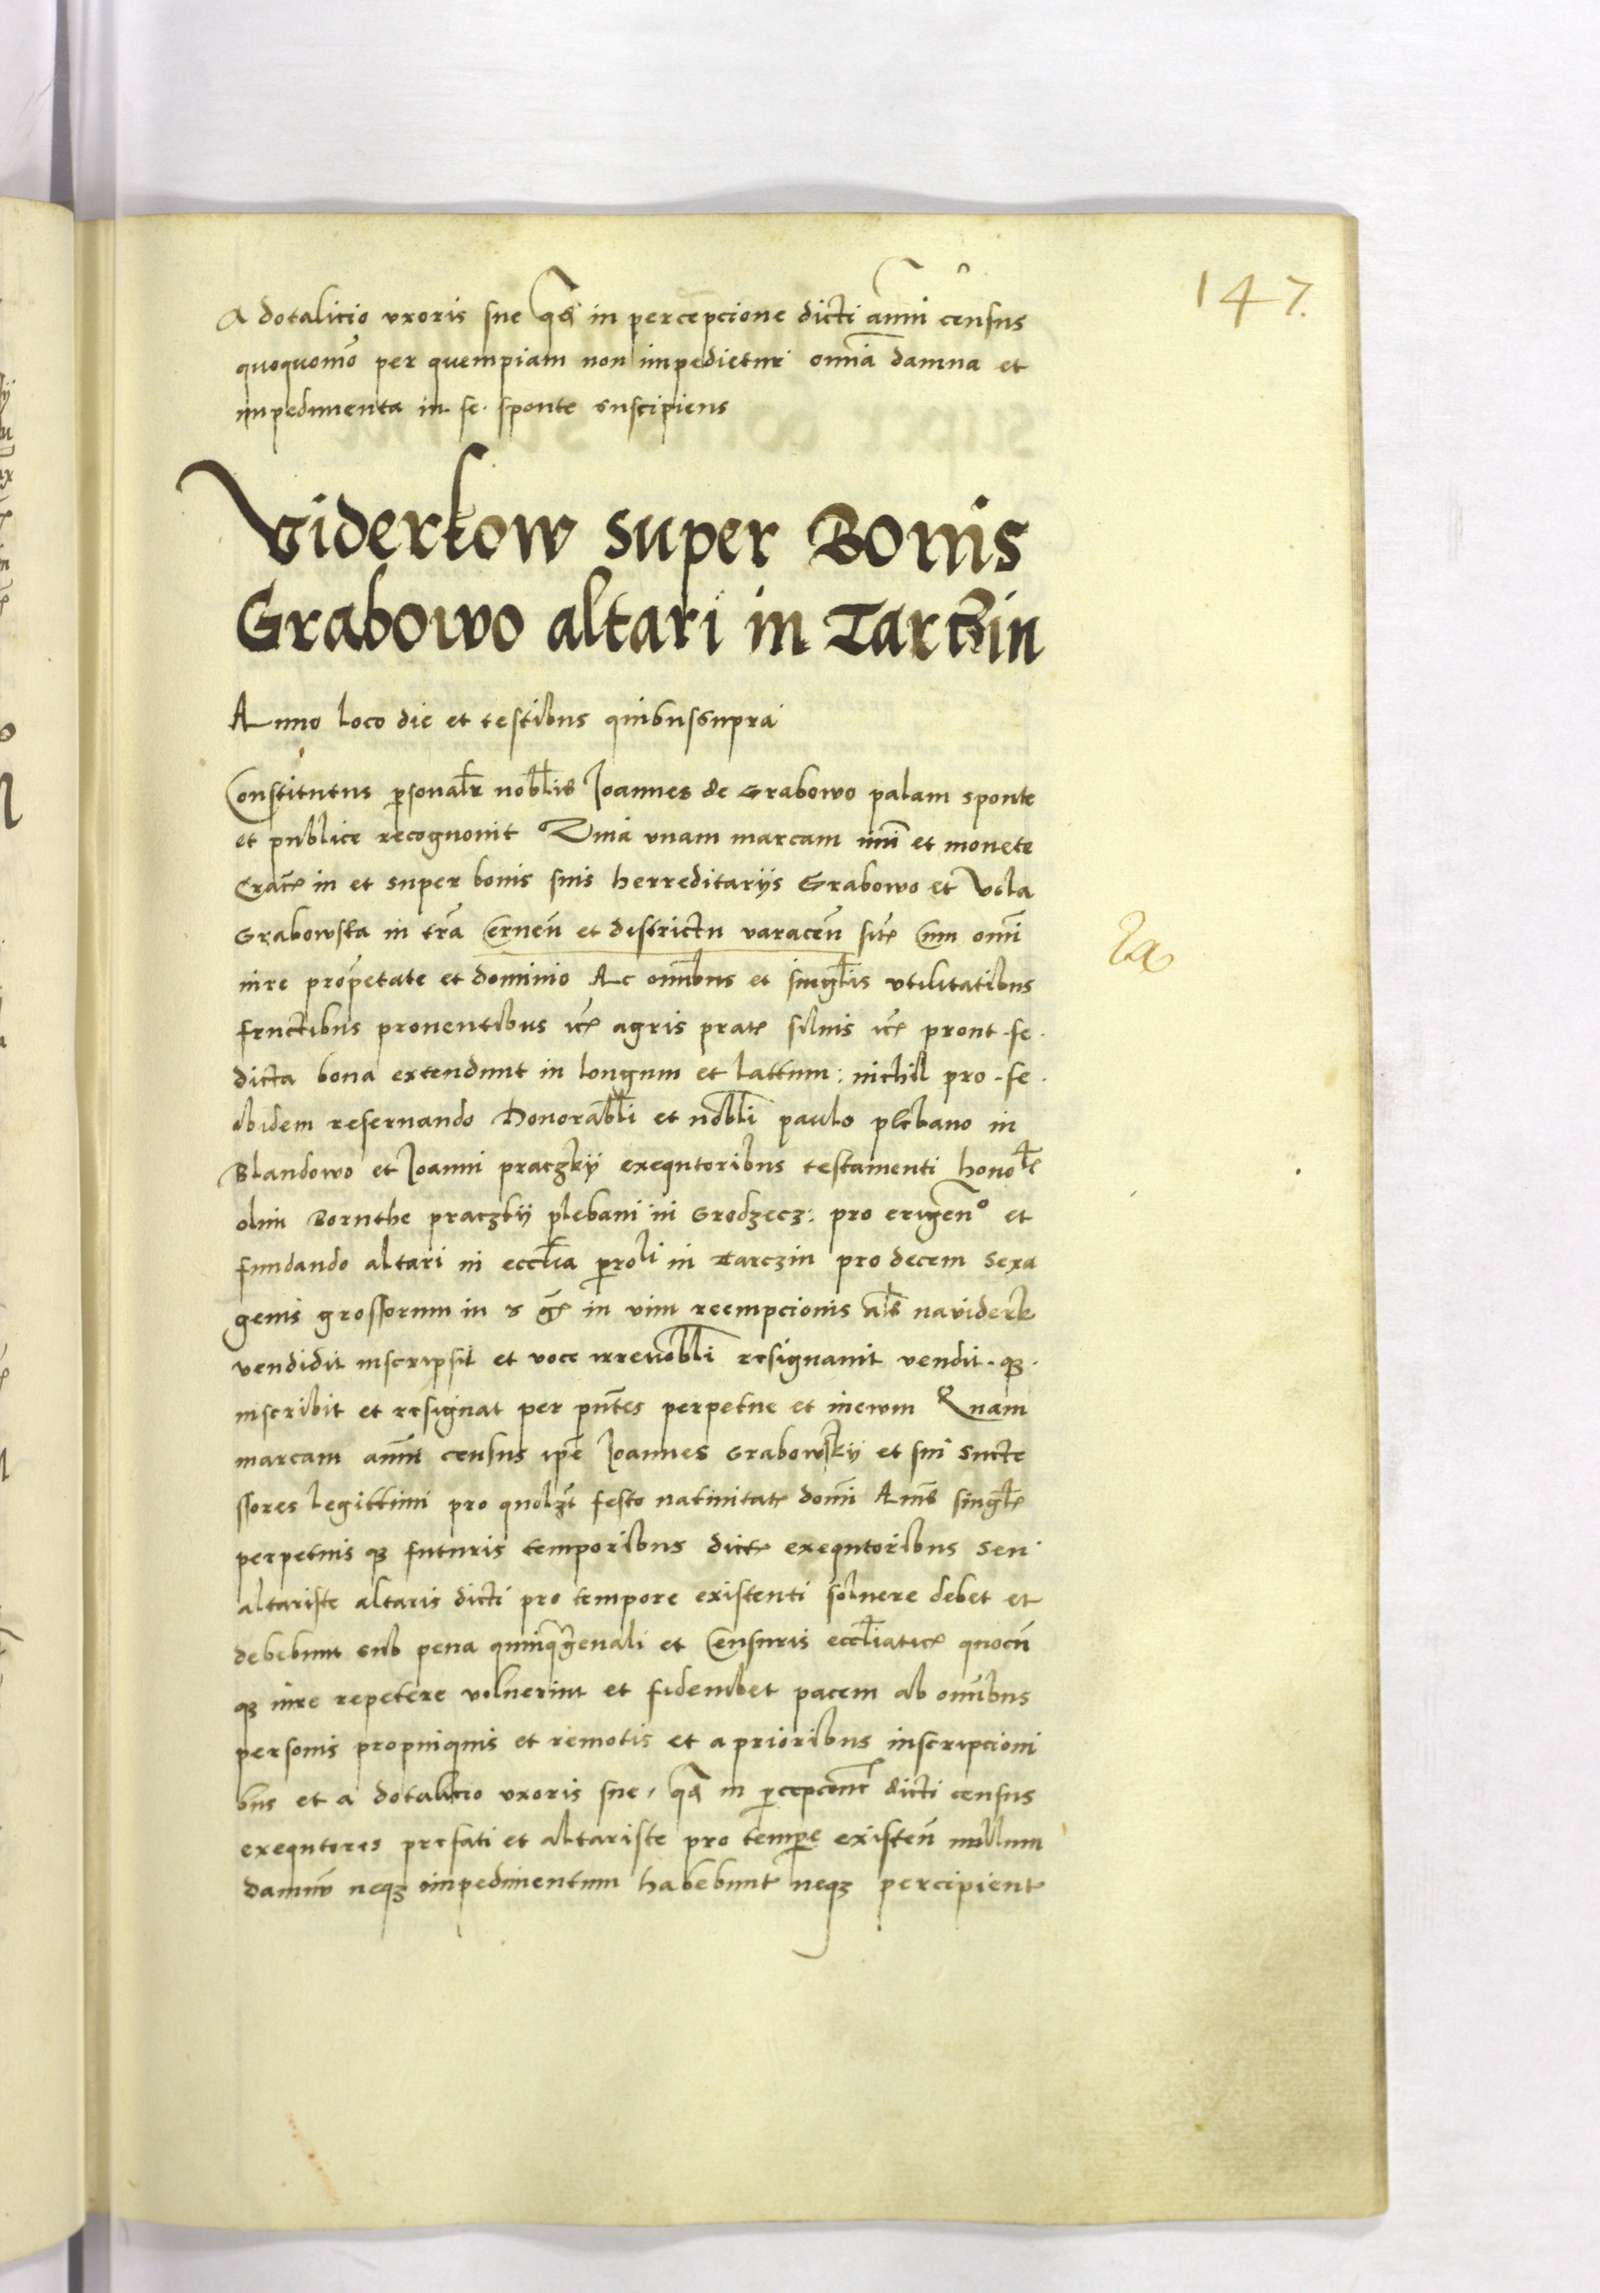 147.
A dotalicio vxoris sue qd in percepcione dicti annui census
quoquomo per quempiam non impedietur omnia damna et
impedimenta in se sponte suscipiens
Viderkow super Bonis
Grabowo altari in Tarczin
Anno loco die et testibus quibussupra
Constitutus personalr noblis Joannes de Grabowo palam sponte
et publice recognouit Quia vnam marcam et monete
in et super bonis suis herreditariis Grabowo et Vola
Grabowska in tra Cernen et districtu varacen site Cum omi
iure propetate et dominio Ac omibus et singlis vtilitatibus
fructibus prouentibus agris prat siluis pront se
dicta bona extendunt in longum et lattum: nichil pro se
ibidem reseruando Honorabli et nobli paulo plebano in
Blandowo et Joanni praczky exequtoribus testamenti
olim Bornthe praczky plebani in Grodzecz: pro erigen° et
fundando altari in ecclia in Tarczin pro decem sexa
genis grossorum in in vim reempcionis als naviderk
vendidit inscripsit et voce irreuobli resignauit vendit qz
inscribit et resignat per pntes perpetue et ineuum Quam
marcam annui census ipe Joannes Grabowsky et sui succe
ssores legittimi pro quolzt festo natiuitat domi Annis singl
perpetuis qz futuris temporibus dict exequtoribus seu
altariste altaris dicti pro tempore existenti soluere debet et
debebunt sub pena quinqgenali et Censuris eccliatic quocun
qz iure repetere voluerint et fidemdet pacem ab omibus
personis propinquis et remotis et a prioribus inscripcioni
bus et a dotalicio vxoris sue, qd in dicti census
exequtores prefati et altariste pro tempore existen nullum
damnu neqz impedimentum habebunt neqz percipient